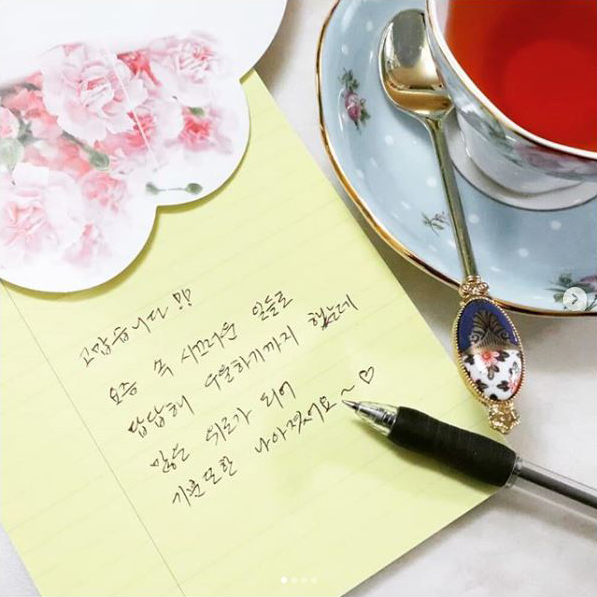 고맙습니다!!
요즘 속 시끄러운 일들로
답답해 우울하기까지 했는데
많은 위로가 되어
기분또한 나아졌어요~♡